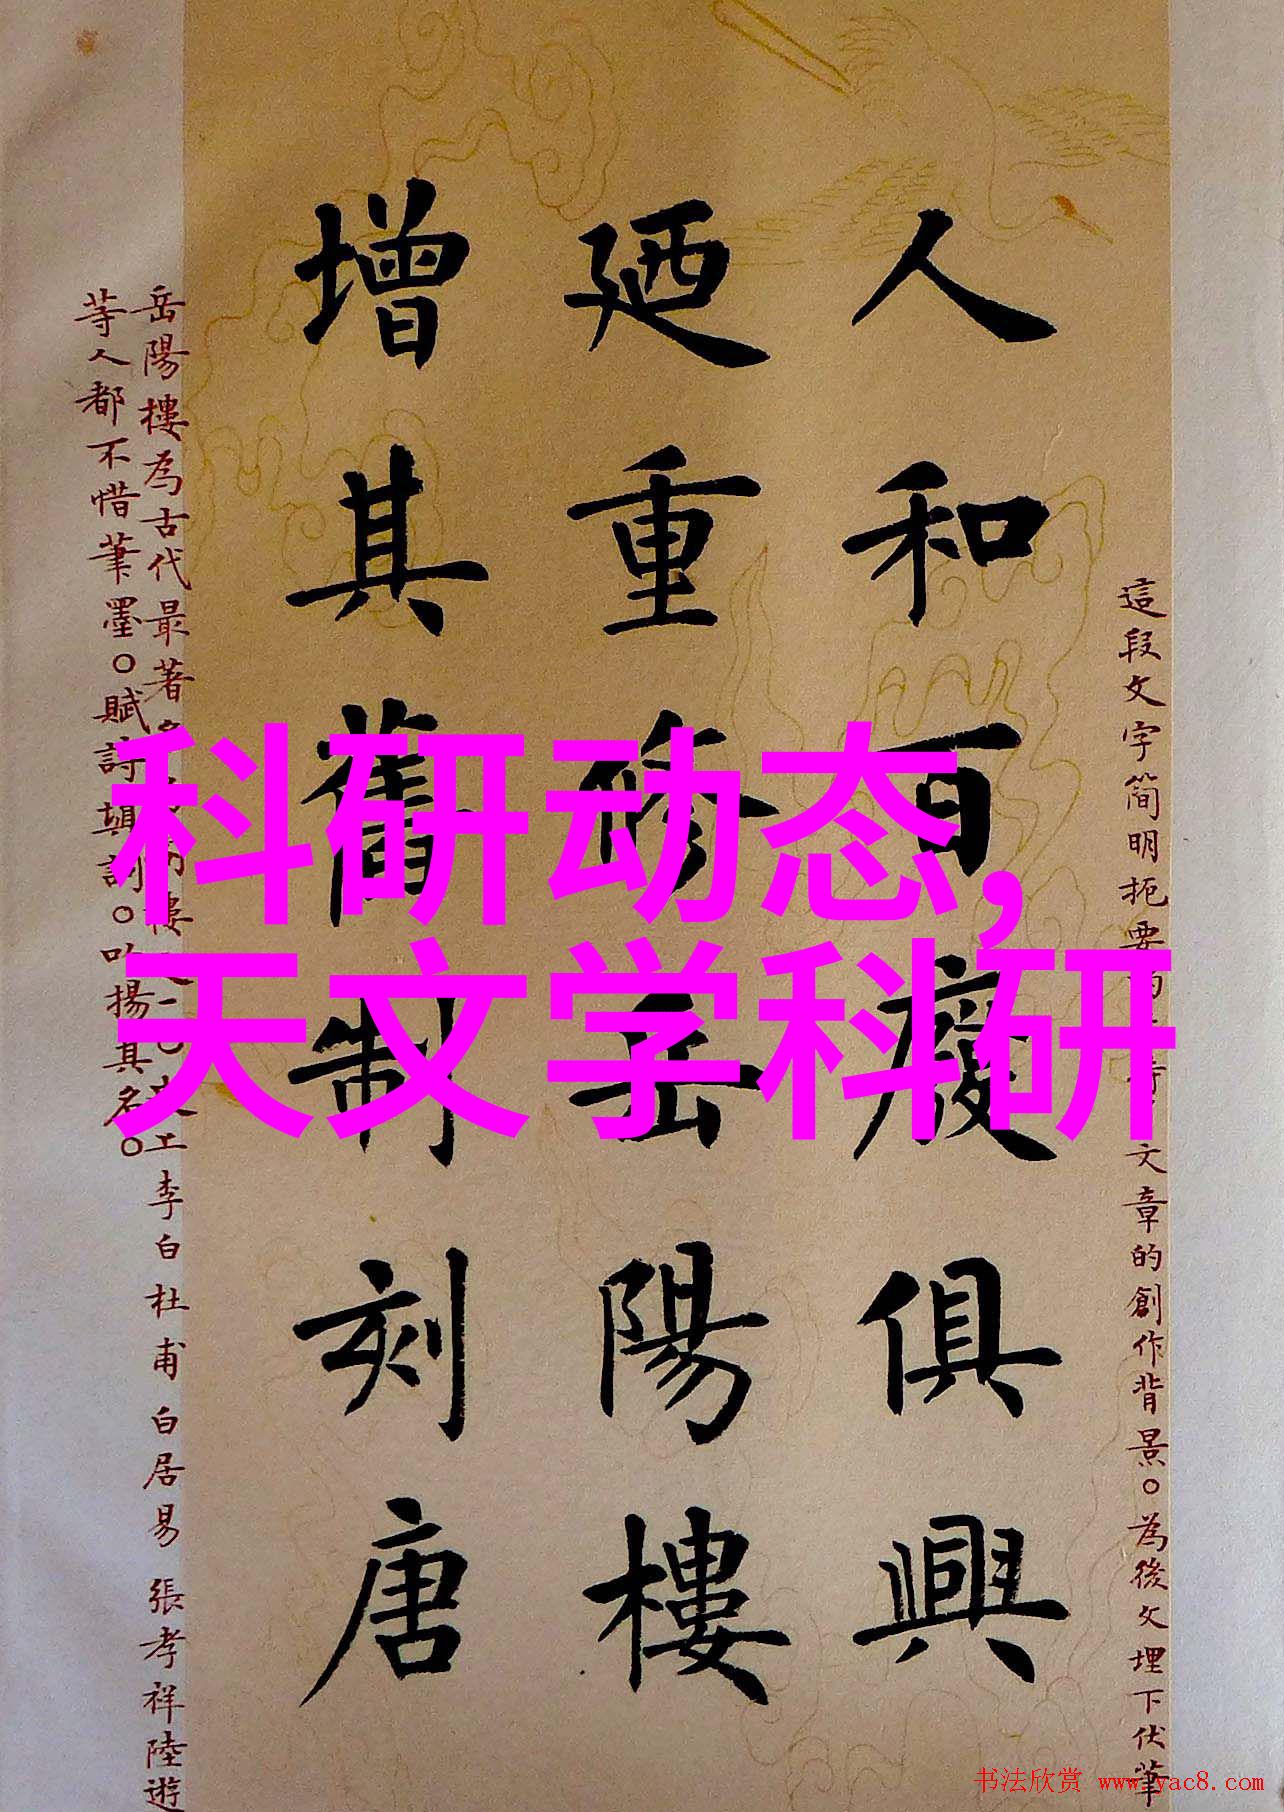 這段文字简明扼要文章的創作背景。為後文埋下伏筆
人和百廢俱興
廼重修岳陽樓
增其舊制刻唐
岳陽樓為古代最著樓李白杜甫白居易張孝祥陸遊
等人都不惜筆墨。賦詩填詞。以揚其名。
科研动态,
天文学科研
书法欣赏 www.yac8.com